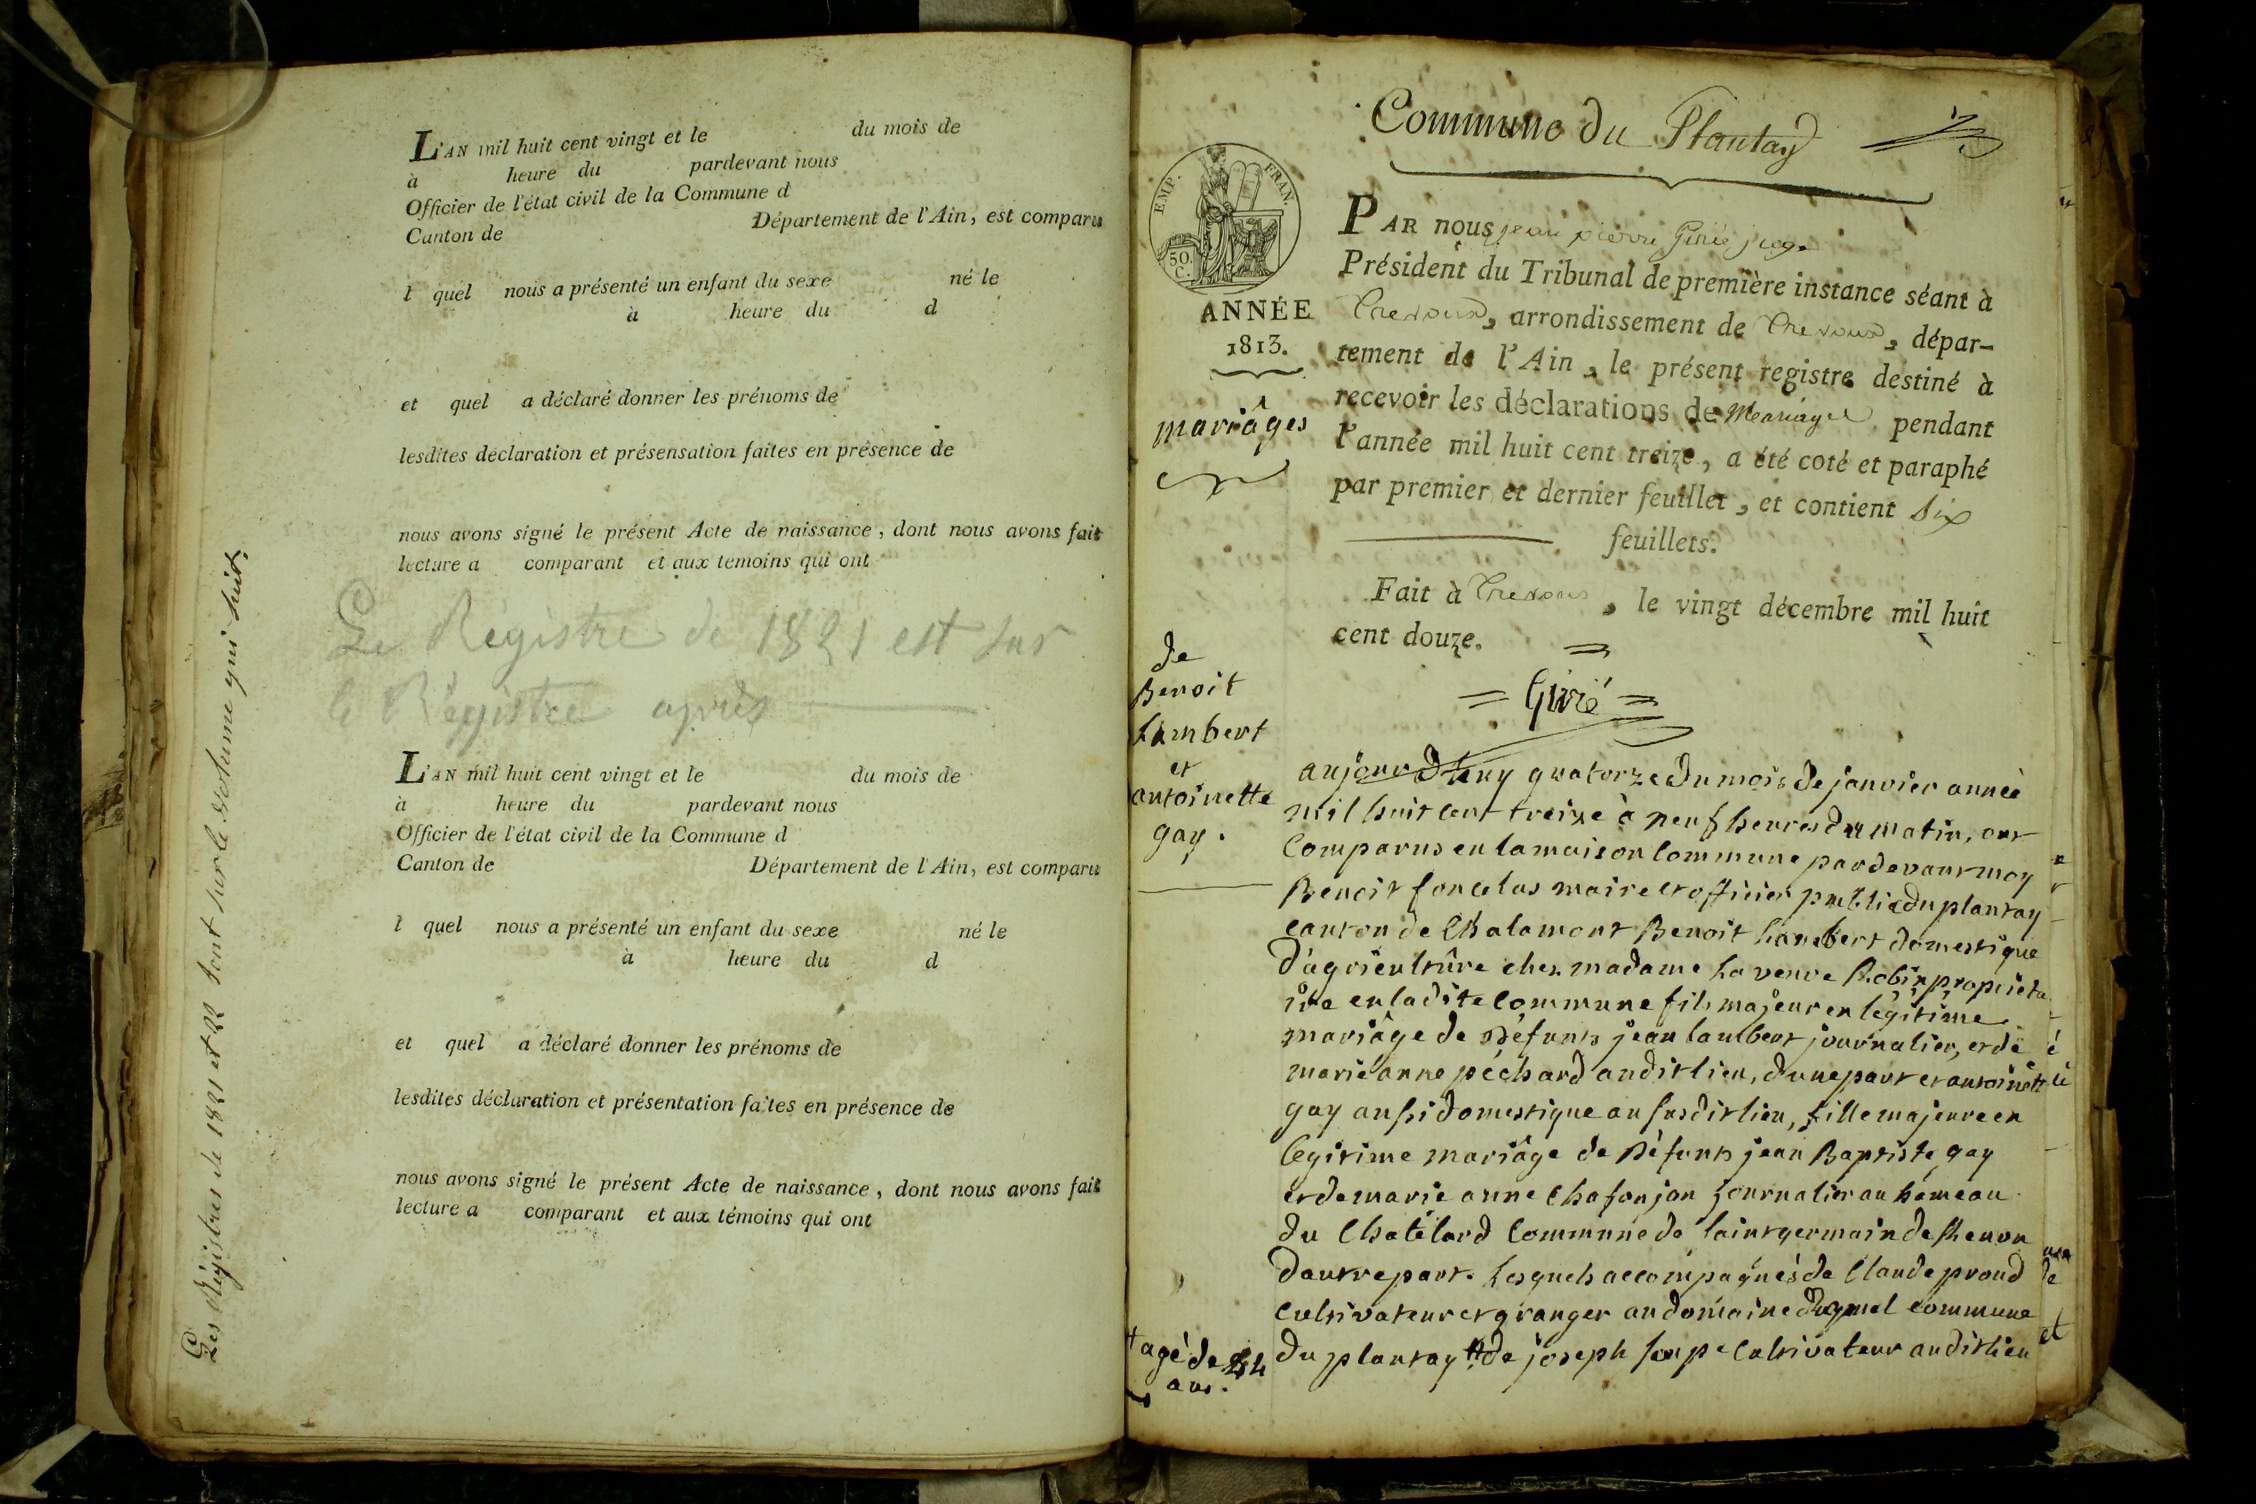 L'AN mil huit cent vingt et le du mois de
à heure du pardevant nous
Officier de l'état civil de la Commune d
Canton de Département de l'Ain, est comparu
l quel nous a présenté un enfant du sexe né le
à heure du d
et quel a déclaré donner les prénoms de
lesdites déclaration et présensation faites en présence de
nous avons signé le présent Acte de naissance, dont nous avons fait
lecture a comparant et aux temoins qui ont
Le Régistre de 1821 est sur
le Régistre après
L'AN mil huit cent vingt et le du mois de
à heure du pardevant nous
Officier de l'état civil de la Commune d
Canton de Département de l'Ain, est comparu
l quel nous a présenté un enfant du sexe né le
à heure du d
et quel a déclaré donner les prénoms de
lesdites déclaration et présentation faites en présence de
nous avons signé le présent Acte de naissance, dont nous avons fait
lecture a comparant et aux témoins qui ont
Les Régistres de 1821 et 22 sont sur le volume qui suit.
Commune du Plantay
EMP. FRAN.
50. C.
ANNÉE
1813.
mariâges
PAR nous jean pierre Giriè juge
Président du Tribunal de première instance séant à
Trevoux, arrondissement de Trevoux, dépar-
tement de l'Ain, le présent registre destiné à
recevoir les déclarations de Mariage pendant
l'année mil huit cent treize, a été coté et paraphé
par premier et dernier feuillet, et contient Six
feuillets.
Fait à Trevoux, le vingt décembre mil huit
cent douze.
Girié
de
Benoit
Lambert
et
antoinette
gay.
aujourdhuy quatorze du mois de janvier année
mil huit cent treize à neuf heures du matin, ont
Comparus en la maison Commune pardevant moy
Benoit foncelas maire et officier public du plantay
canton de Chalamont Benoit Lambert domestique
d'agriculture ches madame la veuve Robin proprieta
ire en ladite Commune fils majeur en légitime
mariâge de défunts jean lambert journalier, et de
marie anne péchard audit lieu, dune part et antoinette
gay aussi domestique au susdit lieu, fille majeure en
legitime mariâge de défunts jean Baptiste gay
et de marie anne Chafonjon journalier au hameau
du Chatelard Commune de saint germain de Renon
dautre part. Lesquels accompagnés de Claude proud
cultivateur et granger au domaine commune
du plantay de joseph cultivateur audit lieu
agé de
ans.